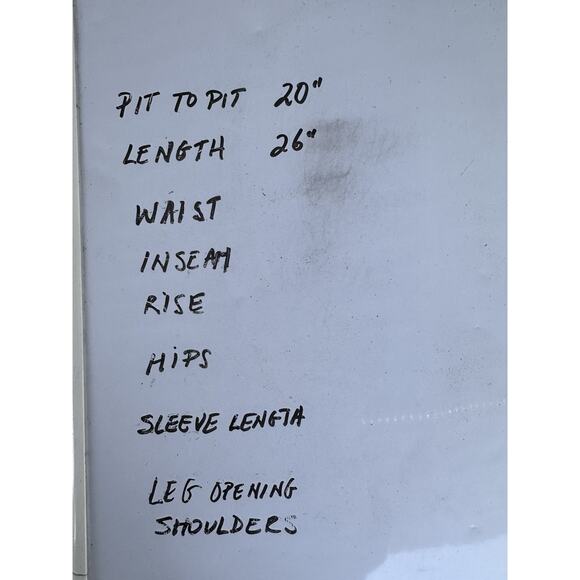 PIT TO PIT 20"
LENGTH 26"
WAIST
INSEAM
RISE
HIPS
SLEEVE LENGTH
LEG OPENING
SHOULDERS